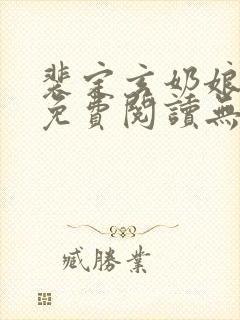 裴宗玄奶娘
免費閱讀無
臧勝業